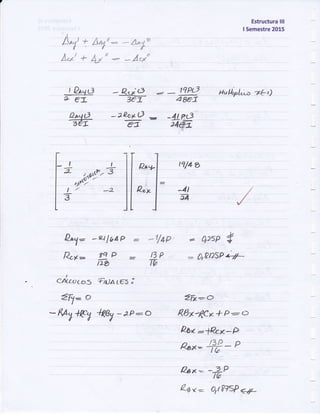 Estructura III
I Semestre 2015
Δay' + Δay'' = - Δay⁰
Δcx' + Δx'' = - Δcx⁰
1/2 RayL3/EI - RcxL3/3EI = - 19PL3/48EI Multiplico x(-1)
RayL3/3EI - 2RcxL3/EI = -41PL3/24EI
-1/2 1/3 Ray 19/48
SIMÉTRICA =
1/3 -2 Rcx -41/24 ✓
Ray = -1/4P = 0,25P
Rcx = P/128 = 13P/16 = 0,8125P
CÁLCULOS FINALES:
ΣFy = 0 ΣFx = 0
- RAy + RCy + RBy - 2P = 0 RBx - RCx + P = 0
RBx = +RCx - P
RBx = 13P/16 - P
RBx = - 3P/16
RBx = 0,1875P